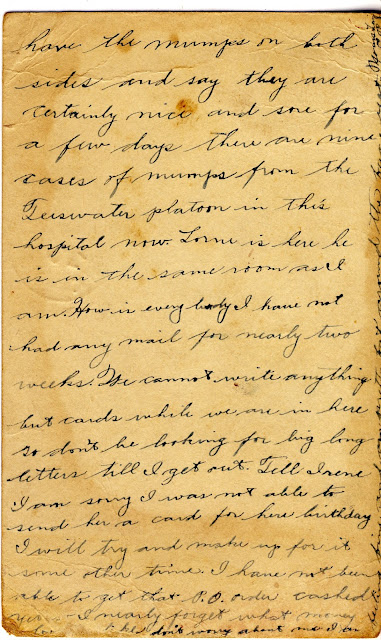 have the mumps on both
sides and say they are
certainly nice and sore for
a few days there are nine
cases of mumps from the
Teeswater platoon in this
hospital now Lorne is here he
is in the same room as I
am. How is every body I have not
had any mail for nearly two
weeks. We cannot write anything
but cards while we are in here
so don't be looking for big long
letters till I get out. Tell Irene
I am sorry I was not able to
send her a card for here birthday
I will try and make up for it
some other time. I have not been
able to get that P.O. order cashed
yet I nearly forget what money
don't worry about me I am